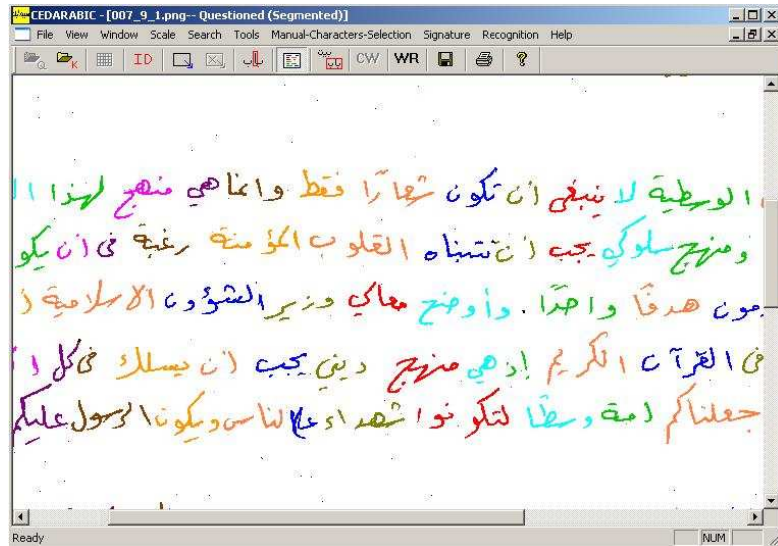 CEDARABIC - [007_9_1.png-- Questioned (Segmented)]
File View Window Scale Search Tools Manual-Characters-Selection Signature Recognition Help
ID CW WR
الوسطية لا ينبغي ان تكون شعارًا فقط وانما هي منهج لهذا
ومنهج سلوكي يجب ان تتبناه القلوب المؤمنة رغبة في ان يكو
مون هدفًا واحدًا . وأوضح معالي وزير الشؤون الاسلامية
في القرآن الكريم إذ هي منهج ديني يجب ان يسلك في كل
جعلناكم امة وسطًا لتكونوا شهداء على الناس ويكون الرسول عليكم
Ready NUM